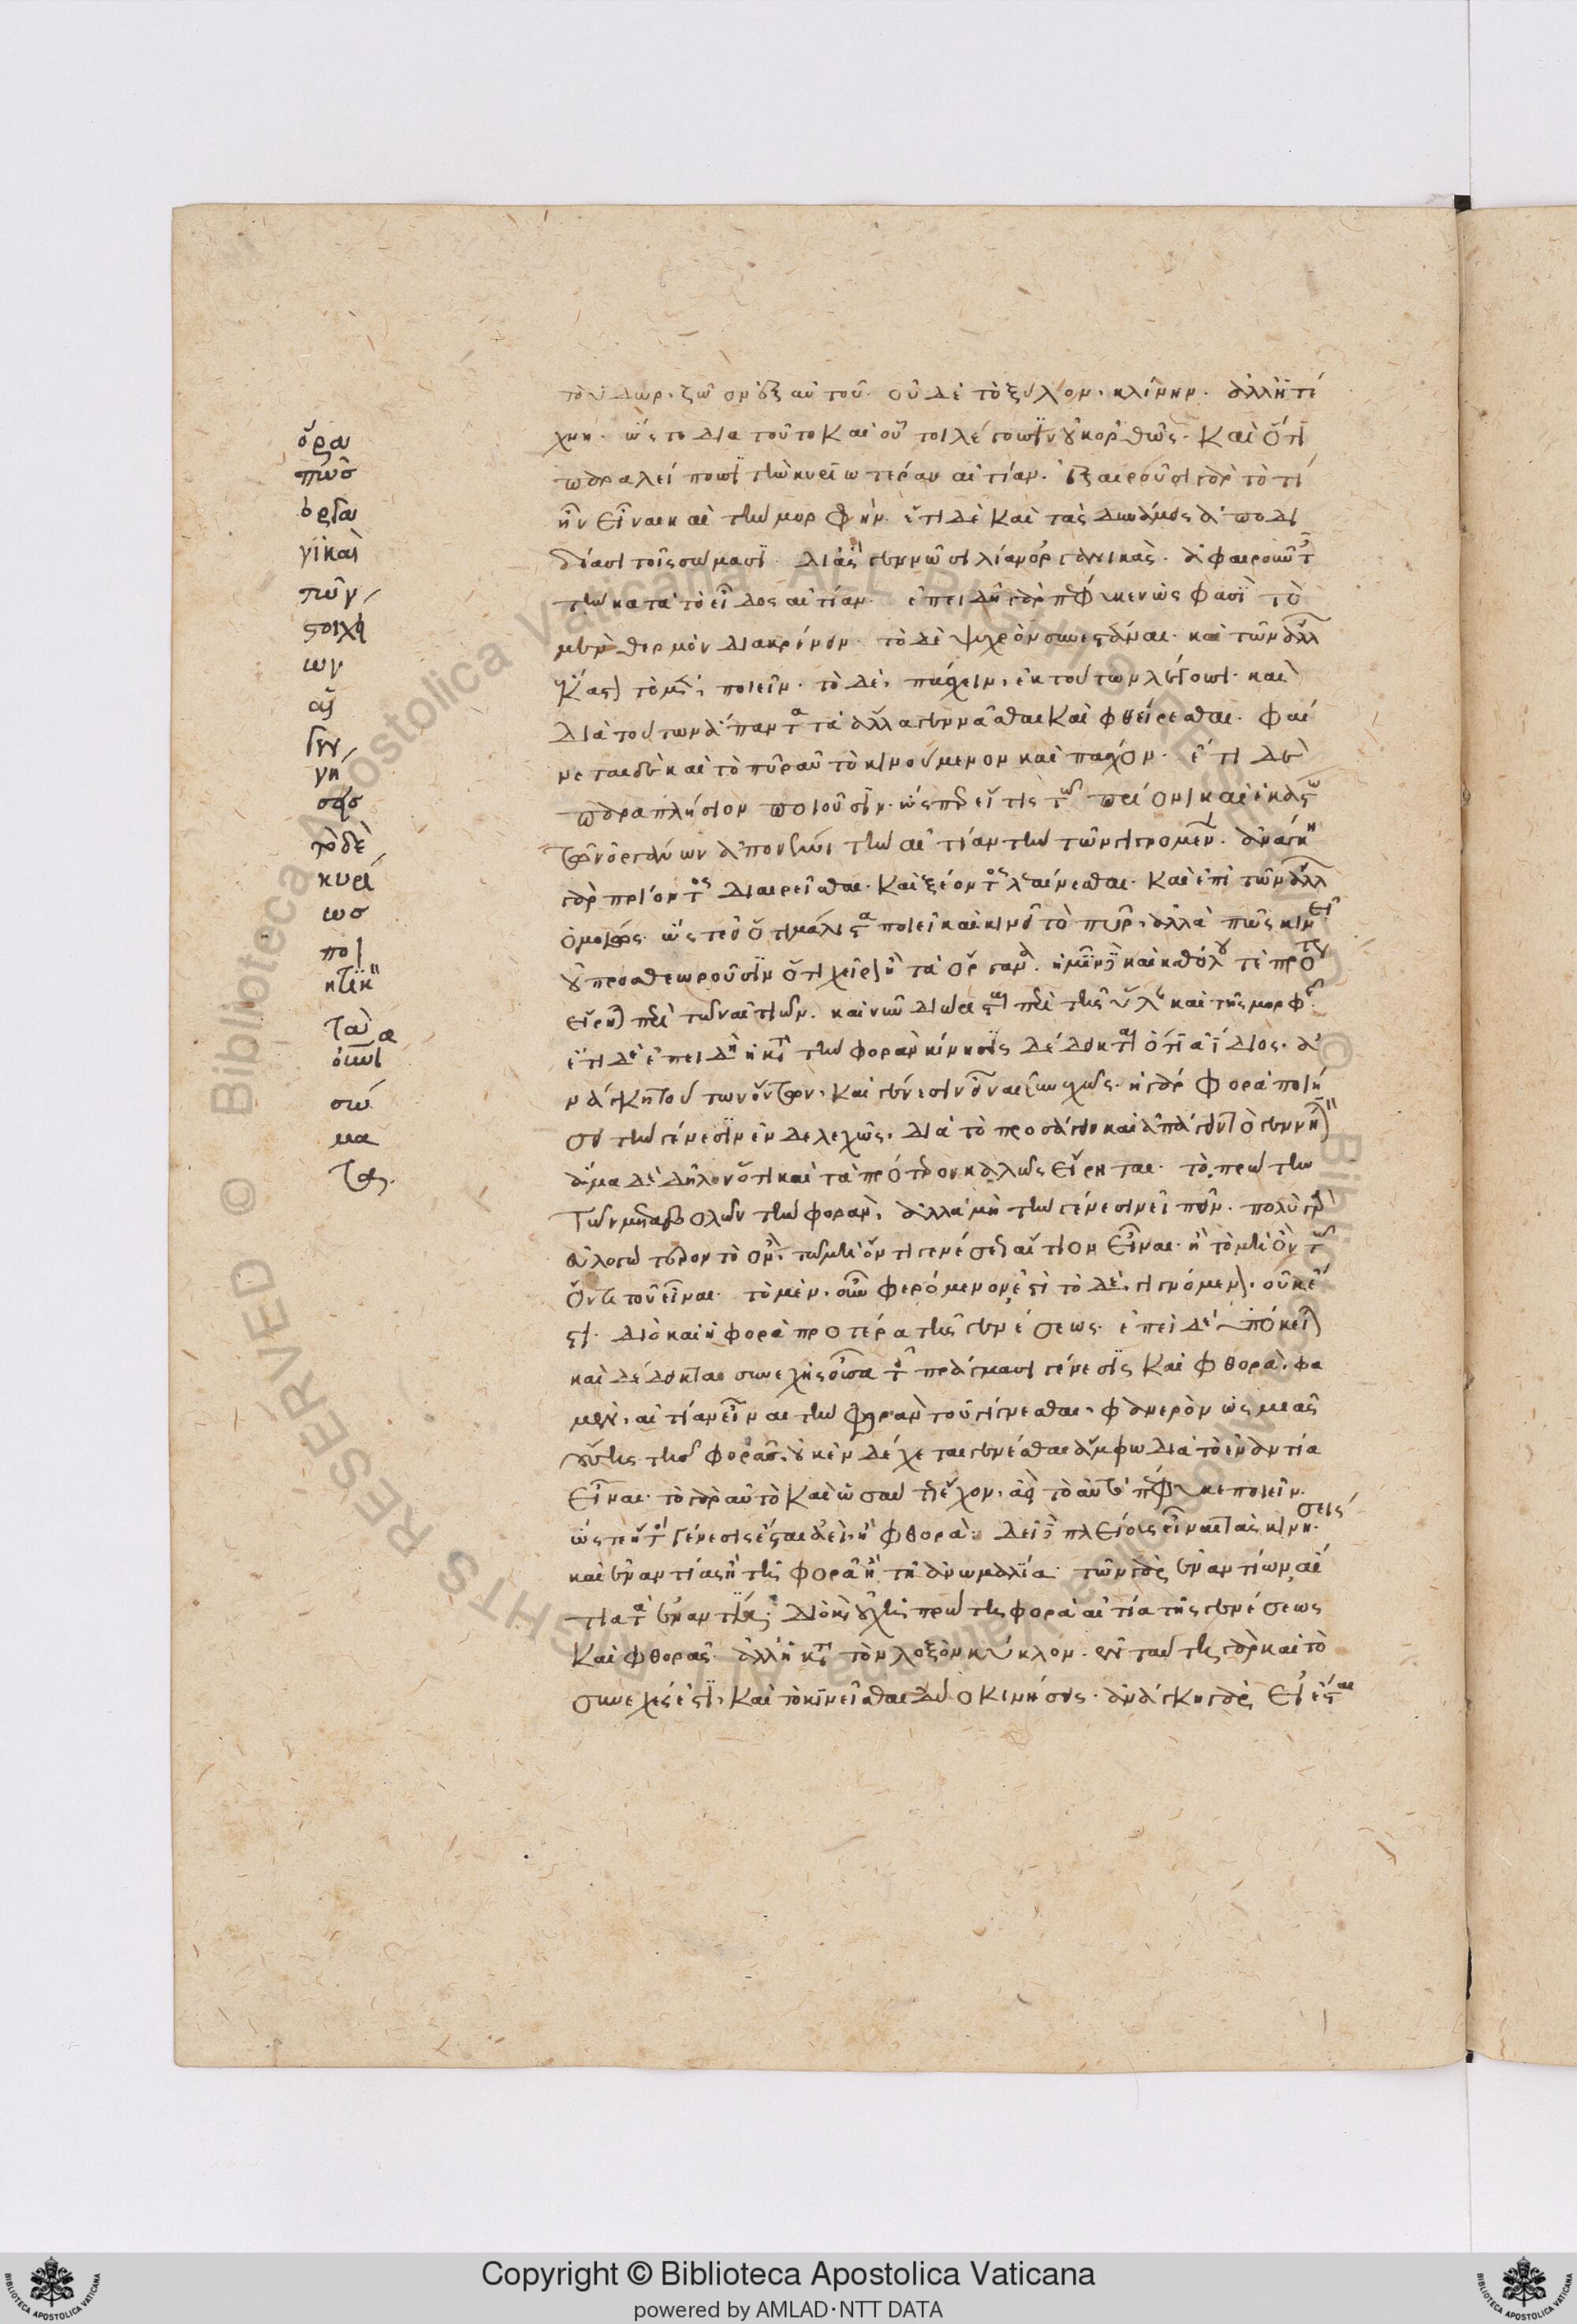 ὅρα
πῶς
ὀργα
νικαὶ
τῶν
στοιχεί
ων
αἱ
γεν
νή
κυρί
ως
ποι
σώ
μα
τα.
τὸ ὕδωρ. ζῶον ἐξ αὑτοῦ. οὐδὲ τὸ ξύλον. κλίνην. ἀλλ' ἡ τέ
χνη. ὥστε διὰ τοῦτο καὶ οὗτοι λέγουσιν οὐκ ὀρθῶς. καὶ ὅτι
παραλείπουσι τὴν κυριωτέραν αἰτίαν. ἐξαιροῦσι γὰρ τὸ τί
ἦν εἶναι καὶ τὴν μορφήν. ἔτι δὲ καὶ τὰς δυνάμεις ἀποδι
δόασι τοῖς σώμασι. δι' ἃς γεννῶσι λίαν ὀργανικὰς. ἀφαιροῦντες
τὴν κατὰ τὸ εἶδος αἰτίαν. ἐπειδὴ γὰρ πέφυκεν ὥς φασι τὸ
μὲν θερμὸν διακρίνειν. τὸ δὲ ψυχρὸν συνιστάναι. καὶ τῶν ἄλλων
ἕκαστον τὸ μὲν, ποιεῖν. τὸ δὲ, πάσχειν, ἐκ τούτων λέγουσι. καὶ
διὰ τούτων ἅπαντα τὰ ἄλλα γίνεσθαι καὶ φθείρεσθαι. φαί
νεται δὲ καὶ τὸ πῦρ αὐτὸ κινούμενον καὶ πάσχον. ἔτι δὲ
παραπλήσιον ποιοῦσιν. ὥσπερ εἴ τις τῷ πρίονι καὶ ἑκάστῳ
τῶν ὀργάνων ἀπονέμοι τὴν αἰτίαν τὴν τῶν γιγνομένων. ἀνάγκη
γὰρ πρίοντος διαιρεῖσθαι. καὶ ξέοντος λεαίνεσθαι. καὶ ἐπὶ τῶν ἄλλων
ὁμοίως. ὥστε εἰ ὅτι μάλιστα ποιεῖ καὶ κινεῖ τὸ πῦρ, ἀλλὰ πῶς κινεῖ
οὐ προσθεωροῦσιν ὅτι χεῖρον ἢ τὰ ὄργανα. ἡμῖν δὲ καὶ καθόλου τε πρότερον
εἴρηται περὶ τῶν αἰτίων. καὶ νῦν διώρισται περὶ τῆς ὕλης καὶ τῆς μορφῆς.
ἔτι δὲ ἐπειδὴ ἡ κατὰ τὴν φορὰν κίνησις δέδεικται ὅτι ἀΐδιος. ἀ
νάγκη τούτων ὄντων, καὶ γένεσιν εἶναι συνεχῶς. ἡ γὰρ φορὰ ποιή
σει τὴν γένεσιν ἐνδελεχῶς. διὰ τὸ προσάγειν καὶ ἀπάγειν τὸ γεννητικόν
ἅμα δὲ δῆλον ὅτι καὶ τὰ πρότερον καλῶς εἴρηται. τὸ πρώτην
τῶν μεταβολῶν τὴν φορὰν, ἀλλὰ μὴ τὴν γένεσιν εἰπεῖν. πολὺ γὰρ
εὐλογώτερον τὸ ὂν, τῷ μὴ ὄντι γενέσεως αἴτιον εἶναι. ἢ τὸ μὴ ὂν τῷ
ὄντι τοῦ εἶναι. τὸ μὲν, οὖν φερόμενον, ἔστι τὸ δὲ, γιγνόμενον. οὐκ ἔ
στι. διὸ καὶ ἡ φορὰ προτέρα τῆς γενέσεως. ἐπεὶ δὲ ὑπόκειται
καὶ δέδεικται συνεχὴς οὖσα τοῖς πράγμασι γένεσις καὶ φθορὰ. φα
μὲν, αἰτίαν εἶναι τὴν φορὰν τοῦ γίγνεσθαι. φανερὸν ὡς μιᾶς
οὔσης τῆς φορᾶς, οὐκ ἐνδέχεται γενέσθαι ἄμφω διὰ τὸ ἐναντία
εἶναι. τὸ γὰρ αὐτὸ καὶ ὡσαύτως ἔχον, ἀεὶ τὸ αὐτὸ πέφυκε ποιεῖν.
ὥστε ἤτοι γένεσις ἔσται ἀεὶ, ἢ φθορὰ. δεῖ δὲ πλείους εἶναι τὰς κινήσεις
καὶ ἐναντίας ἢ τῇ φορᾷ ἢ τῇ ἀνωμαλίᾳ. τῶν γὰρ ἐναντίων, αἴ
τια τὰ ἐναντία. διὸ καὶ οὐχ ἡ πρώτη φορὰ αἰτία τῆς γενέσεως
καὶ φθορᾶς. ἀλλ' ἡ κατὰ τὸν λοξὸν κύκλον. ἐν ταύτῃ γὰρ καὶ τὸ
συνεχές ἐστι, καὶ τὸ κινεῖσθαι δύο κινήσεις. ἀνάγκη γὰρ εἰ ἔσται